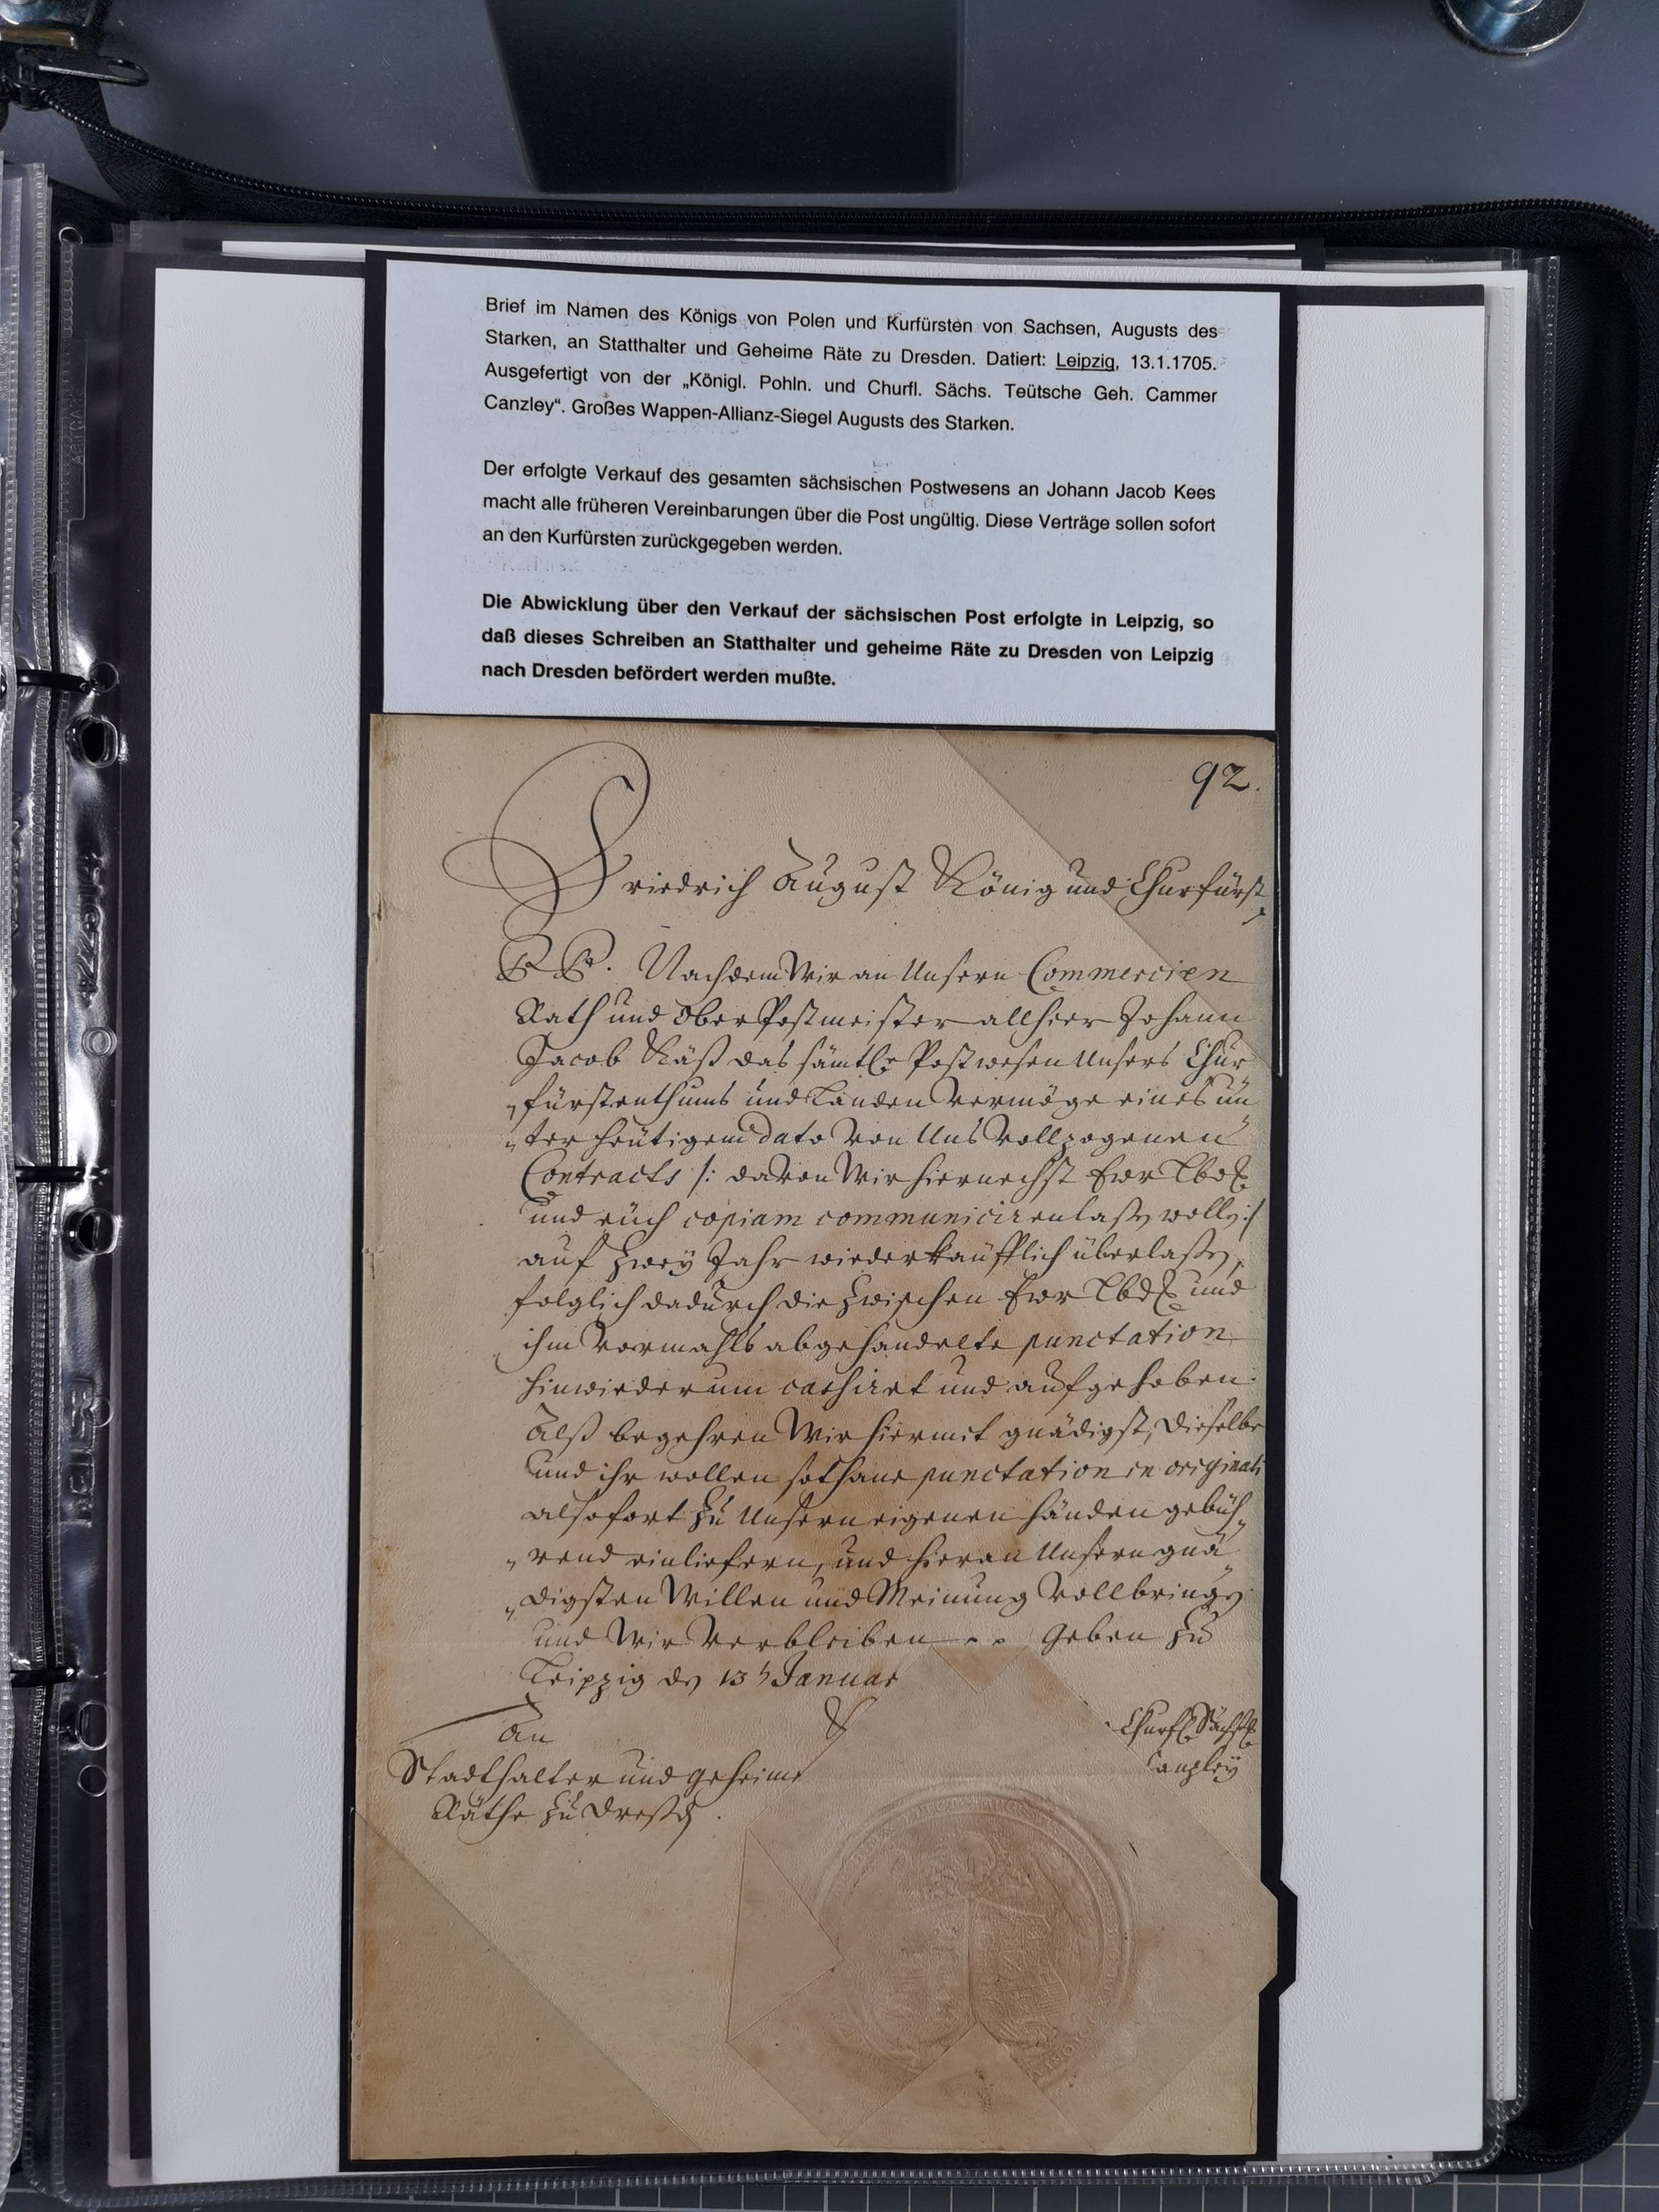 Brief im Namen des Königs von Polen und Kurfürsten von Sachsen, Augusts des
Starken, an Statthalter und Geheime Räte zu Dresden. Datiert: Leipzig, 13.1.1705.
Ausgefertigt von der „Königl. Pohln. und Churfl. Sächs. Teütsche Geh. Cammer
Canzley“. Großes Wappen-Allianz-Siegel Augusts des Starken.
Der erfolgte Verkauf des gesamten sächsischen Postwesens an Johann Jacob Kees
macht alle früheren Vereinbarungen über die Post ungültig. Diese Verträge sollen sofort
an den Kurfürsten zurückgegeben werden.
Die Abwicklung über den Verkauf der sächsischen Post erfolgte in Leipzig, so
daß dieses Schreiben an Statthalter und geheime Räte zu Dresden von Leipzig
nach Dresden befördert werden mußte.
92.
Friedrich August König und Churfürst
P. P. Nachdem Wir an Unsern Commercien
Rath und Ober Postmeister allhier Johann
Jacob Käß das sämtl. Postwesen Unsers Chur
fürstenthums und Landen vermöge eines un
ter heütigem dato von Uns vollzogenen
Contracts /: davon Wir hiernechst Ewr Lbd.
und eüch copiam communiciren laßen wollen :/
auf zwey Jahr wiederkäufflich überlaßen,
folglich dadurch die zwischen Ewr Lbd. und
ihm vormahls abgehandelte punctation
hinwiederum cashiret und aufgehoben.
Alß begehren Wir hiermit gnädigst, dieselbe
und ihr wollen sothane punctation in originali
alsofort zu Unsern eigenen händen gebüh„
„rend einliefern, und hieran Unsern gnä
„digsten Willen und Meinung vollbringen
und Wir verbleiben Geben zu
Leipzig den 13 Januar
An
Stadthalter und geheime
Räthe zu Dreßden.
Churfl. Sächß.
Canzley